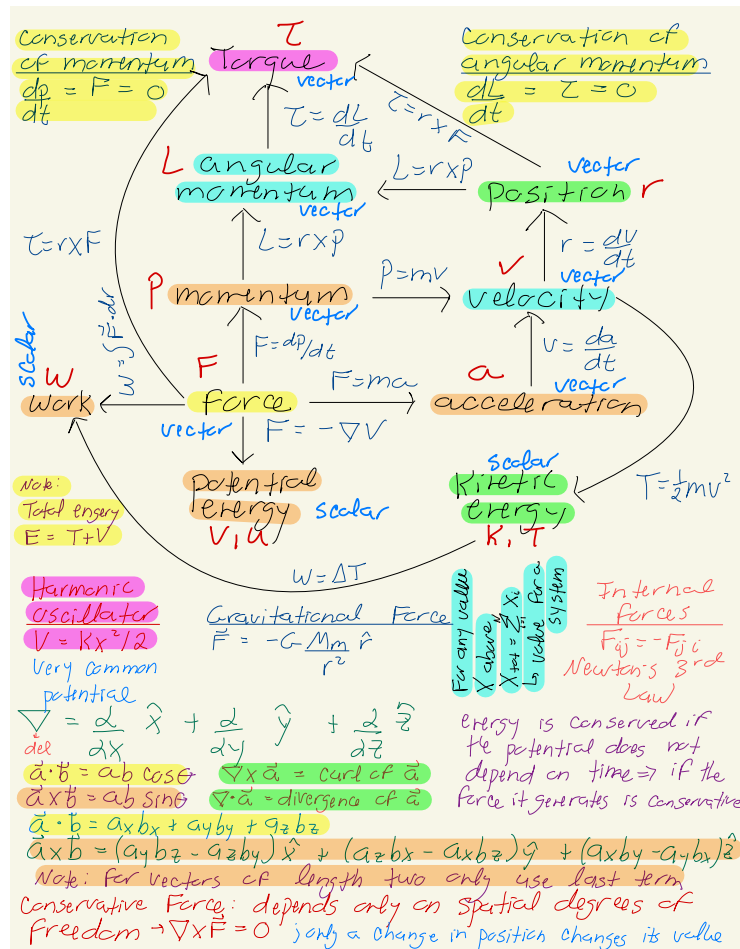 Conservation
of momentum
dp/dt = F = 0
τ
Torque
vector
Conservation of
angular momentum
dL/dt = τ = 0
τ = dL/dt
τ=r×F
L angular
momentum
vector
L=r×P
vector
position r
τ=r×F
L=r×P
r = dv/dt
P momentum
vector
P=mv
v
velocity
vector
W=∫F⃗·dr
F=dp/dt
v = da/dt
scalar
W
work
F
force
vector
F=ma
a
vector
acceleration
F = -∇V
potential
energy
V, U
scalar
scalar
kinetic
energy
K, T
T=½mv²
Note:
Total engery
E = T+V
W=ΔT
Harmonic
oscillator
V = Kx²/2
very common
potential
Gravitational Force
F⃗ = -G Mm/r² r̂
For any value
X above,
X_tot = Σ_{i=1}^{N} X_i
↳ value for a
system
Internal
forces
F_ij = -F_ji
Newton's 3rd
Law
∇ = d/dx x̂ + d/dy ŷ + d/dz ẑ
del
a⃗·b⃗ = ab cosθ
∇×a⃗ = curl of a⃗
a⃗×b⃗ = ab sinθ
∇·a⃗ = divergence of a⃗
a⃗·b⃗ = axbx + ayby + azbz
energy is conserved if
the potential does not
depend on time ⇒ if the
force it generates is conservative
a⃗×b⃗ = (aybz - azby)x̂ + (azbx - axbz)ŷ + (axby - aybx)ẑ
Note: For vectors of length two only use last term
Conservative Force: depends only on spatial degrees of
freedom → ∇×F⃗ = 0 ; only a change in position changes its value